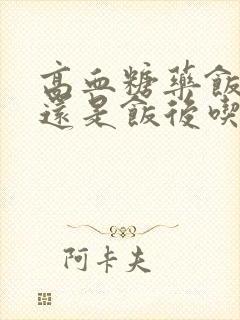 高血糖药飯
還是飯後喫
阿卡夫